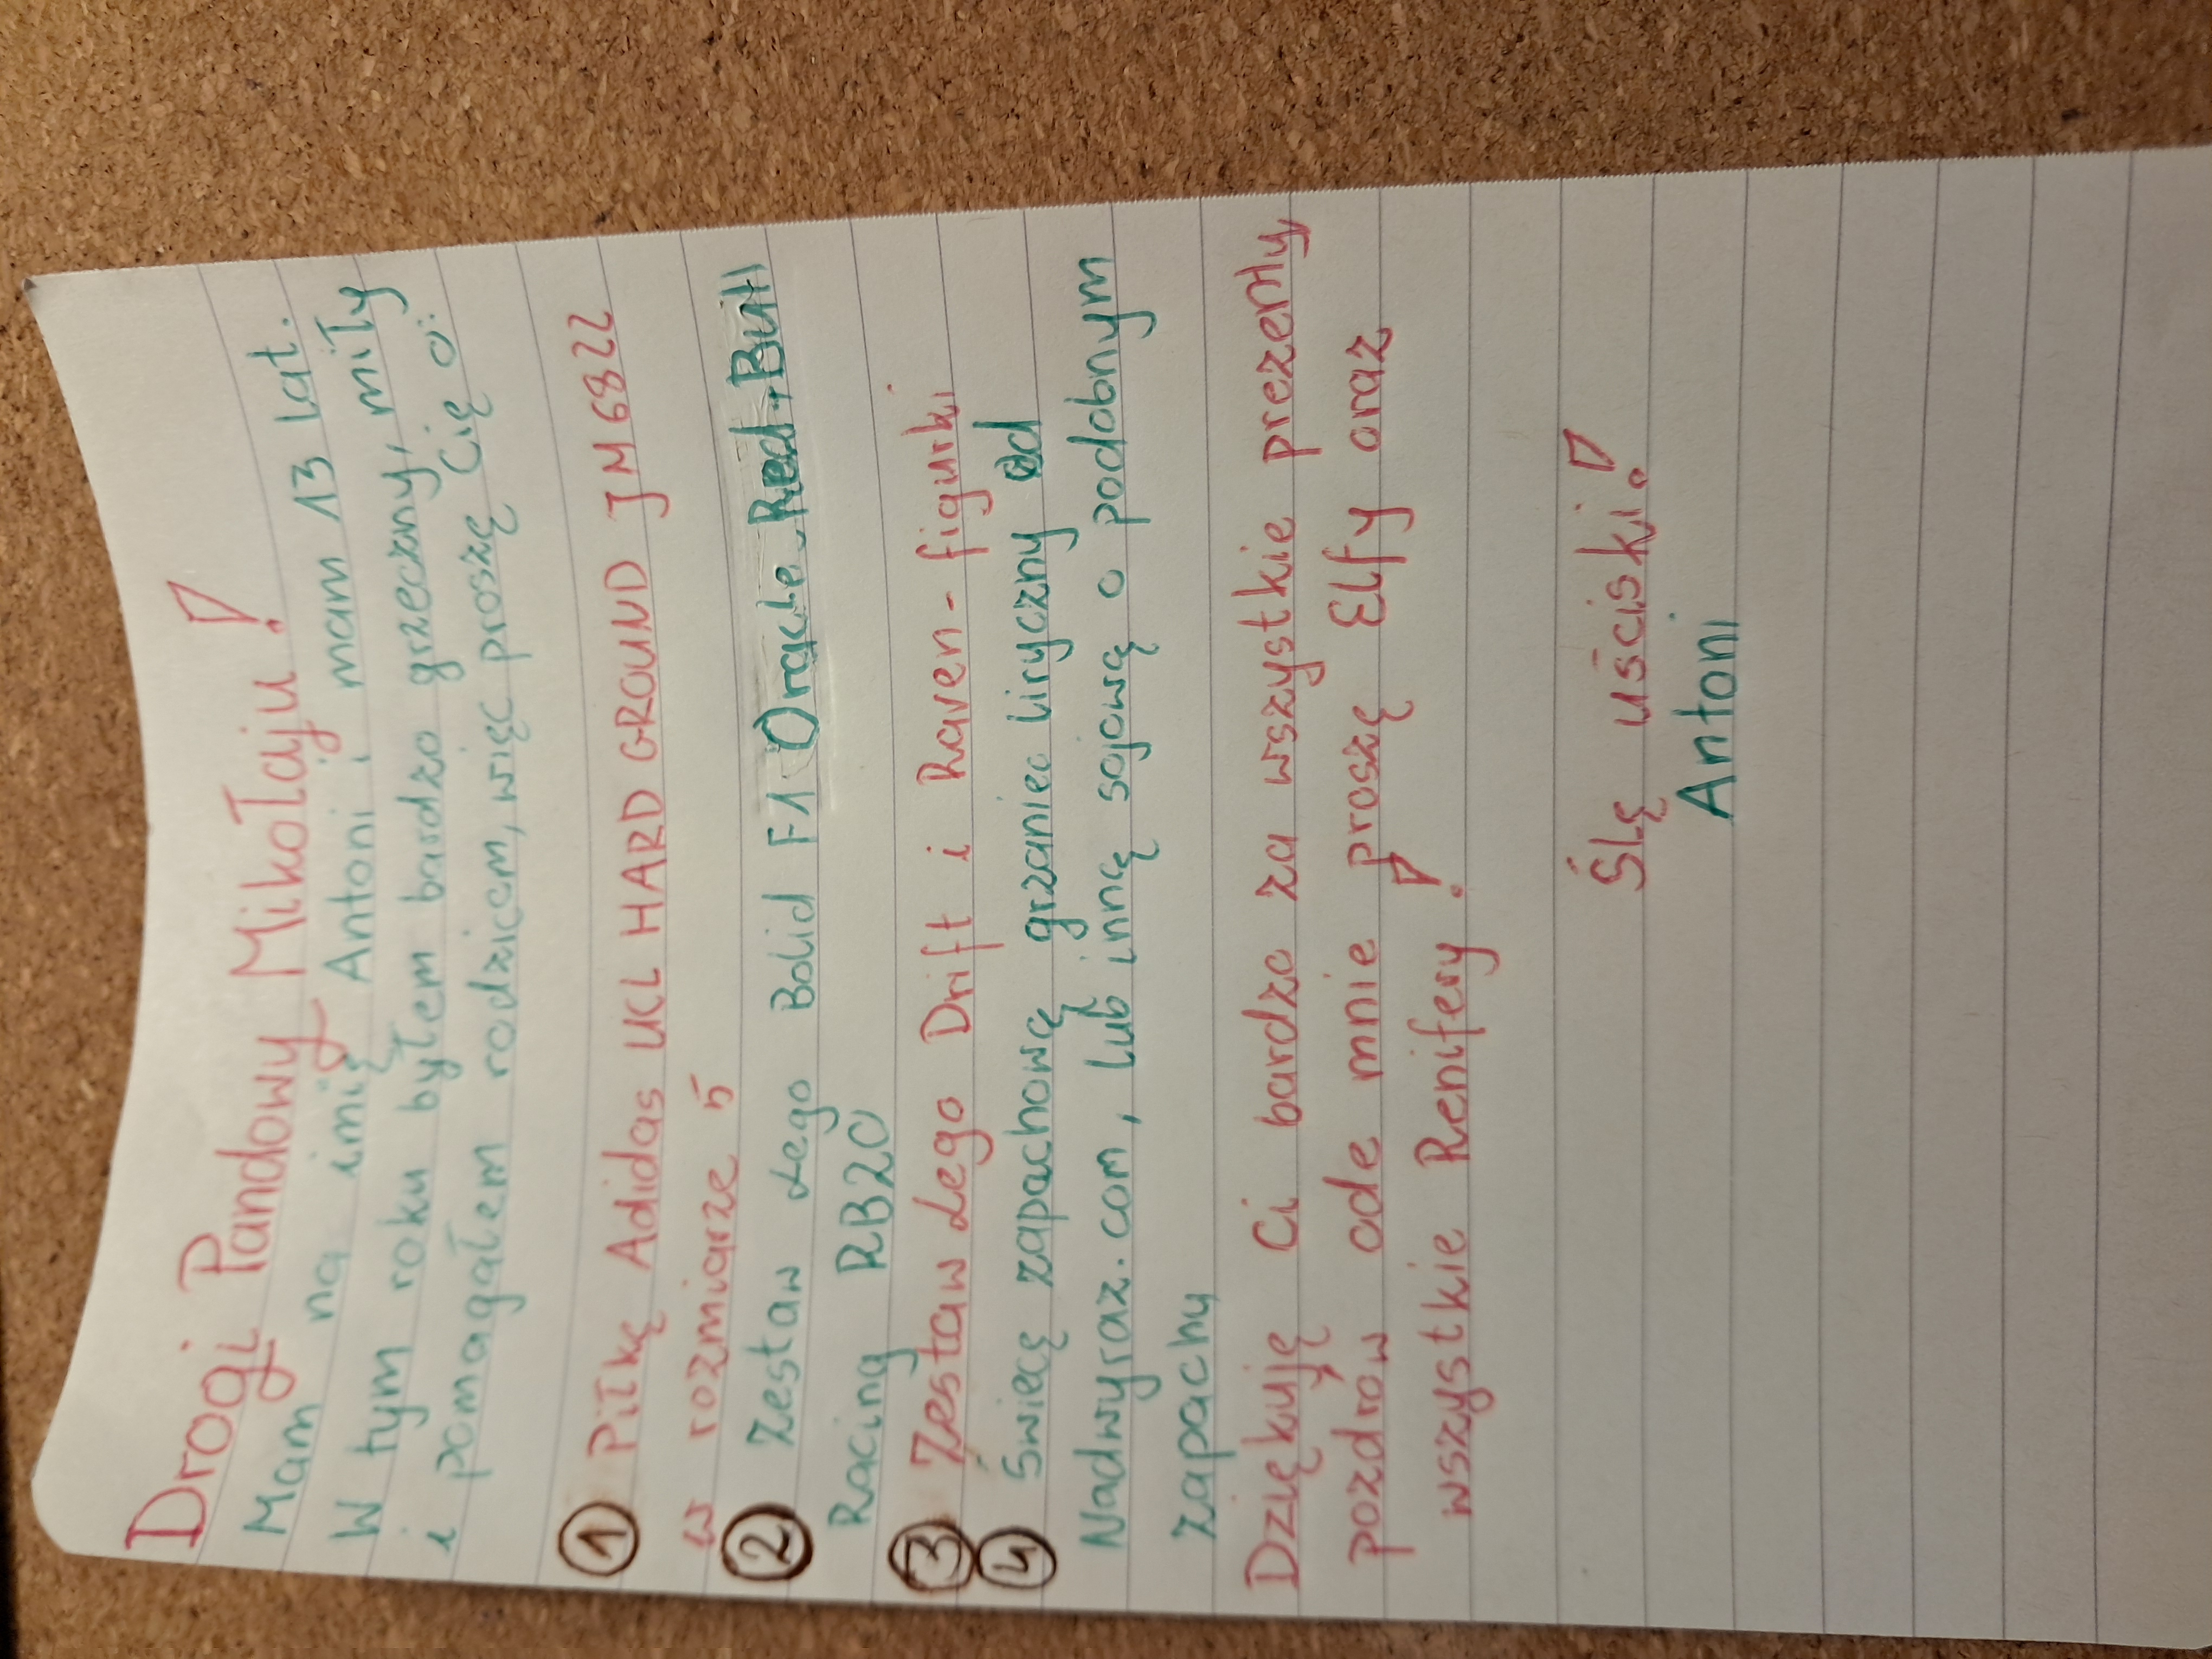 Drogi Pandowy Mikołaju!
Mam na imię Antoni i mam 13 lat.
W tym roku byłem bardzo grzeczny, miły
i pomagałem rodzicom, więc proszę Cię o:
1 Piłkę Adidas UCL HARD GROUND JM6822
w rozmiarze 5
2 Zestaw Lego Bolid F1 Oracle Red Bull
Racing RB20
3 Zestaw Lego Drift i Raven - figurki
4 Świecę zapachową grzaniec liryczny od
Nadwyraz.com, lub inną sojową o podobnym
zapachu
Dziękuję Ci bardzo za wszystkie prezenty
pozdrów ode mnie proszę Elfy oraz
wszystkie Renifery!
Ślę uściski!
Antoni